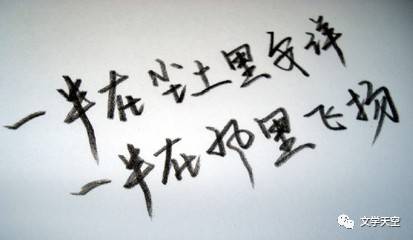 一半在尘土里安详
一半在风里飞扬
文学天空